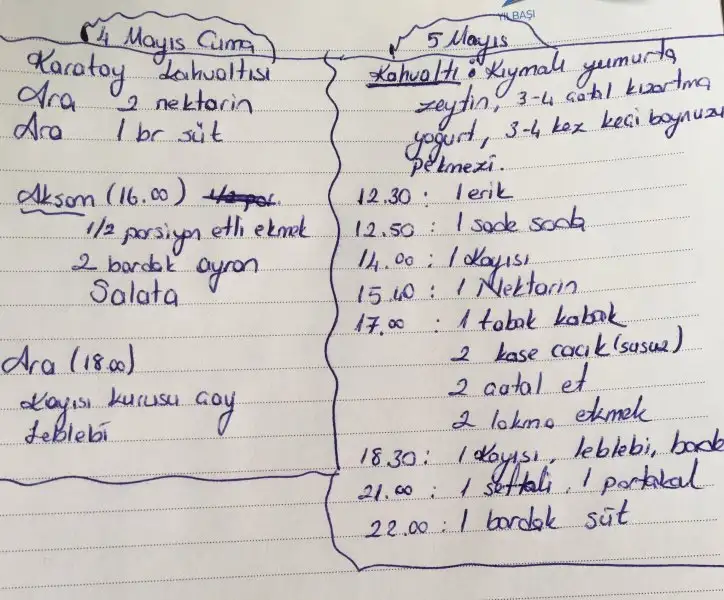 YILBAŞI
4 Mayıs Cuma
Karatay kahvaltısı
Ara 2 nektarin
Ara 1 br süt
Akşam (16.00) 1/2 por.
1/2 porsiyon etli ekmek
2 bardak ayran
Salata
Ara (18.00)
Kayısı kurusu çay
Leblebi
5 Mayıs
Kahvaltı: Kıymalı yumurta
zeytin, 3-4 çatal kızartma
yogurt, 3-4 kez keçi boynuzu
pekmezi.
12.30: 1 erik
12.50: 1 sade soda
14.00: 1 Kayısı
15.40: 1 Nektarin
17.00: 1 tabak kabak
2 kase cacık (susuz)
2 çatal et
2 lokma ekmek
18.30: 1 Kayısı, leblebi,
21.00: 1 şeftali, 1 portakal
22.00: 1 bardak süt